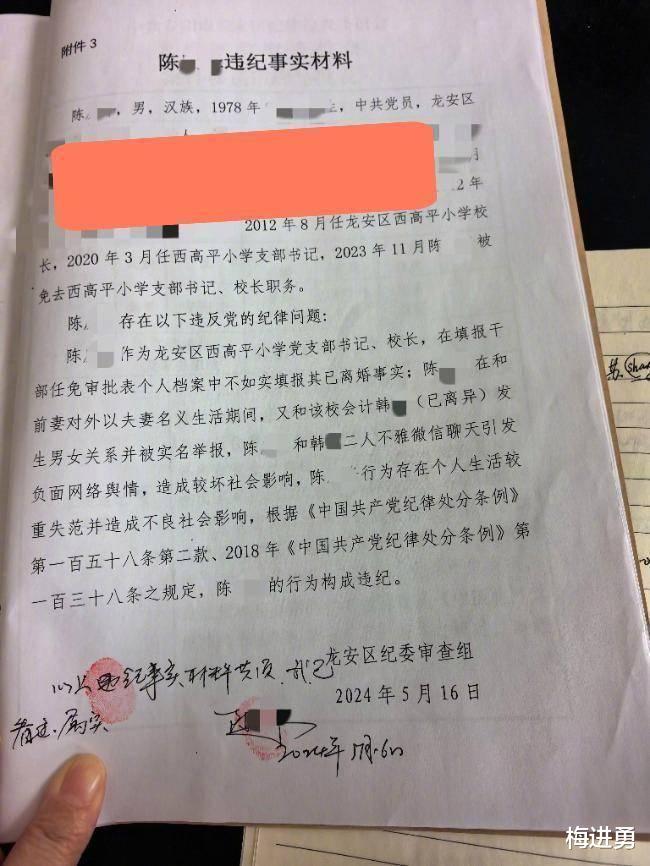 附件 3
陈 违纪事实材料
陈 ,男,汉族,1978 年 ,中共党员,龙安区
人
月
2 年
2012 年 8 月任龙安区西高平小学校
长,2020 年 3 月任西高平小学支部书记,2023 年 11 月陈 被
免去西高平小学支部书记、校长职务。
陈 存在以下违反党的纪律问题:
陈 作为龙安区西高平小学党支部书记、校长,在填报干
部任免审批表个人档案中不如实填报其已离婚事实;陈 在和
前妻对外以夫妻名义生活期间,又和该校会计韩 (已离异)发
生男女关系并被实名举报,陈 和韩 二人不雅微信聊天引发
负面网络舆情,造成较坏社会影响,陈 行为存在个人生活较
重失范并造成不良社会影响,根据《中国共产党纪律处分条例》
第一百五十八条第二款、2018 年《中国共产党纪律处分条例》第
一百三十八条之规定,陈 的行为构成违纪。
龙安区纪委审查组
2024 年 5 月 16 日
以上违纪事实材料共1页,我已
看过,属实
2024年5月16日
苏
Shan
梅进勇